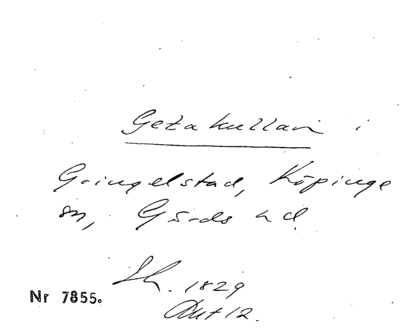 Getakullan i
Gringelstad, Köpinge
sn, Gärds hd.
Sk. 1829
Nr 7855.
12.